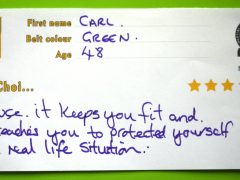 First name CARL.
Belt colour GREEN.
Age 48
Choi...
use. it keeps you fit and.
teaches you to protected yourself
real life Sitution.